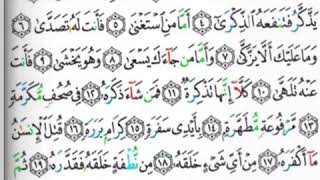 يَذَّكَّرُ فَتَنفَعَهُ ٱلذِّكْرَىٰٓ ٤ أَمَّا مَنِ ٱسْتَغْنَىٰ ٥ فَأَنتَ لَهُۥ تَصَدَّىٰ ٦
وَمَا عَلَيْكَ أَلَّا يَزَّكَّىٰ ٧ وَأَمَّا مَن جَآءَكَ يَسْعَىٰ ٨ وَهُوَ يَخْشَىٰ ٩ فَأَنتَ
عَنْهُ تَلَهَّىٰ ١٠ كَلَّآ إِنَّهَا تَذْكِرَةٌ ١١ فَمَن شَآءَ ذَكَرَهُۥ ١٢ فِى صُحُفٍ مُّكَرَّمَةٍ
١٣ مَّرْفُوعَةٍ مُّطَهَّرَةٍۭ ١٤ بِأَيْدِى سَفَرَةٍ ١٥ كِرَامٍۭ بَرَرَةٍ ١٦ قُتِلَ ٱلْإِنسَٰنُ
مَآ أَكْفَرَهُۥ ١٧ مِنْ أَىِّ شَىْءٍ خَلَقَهُۥ ١٨ مِن نُّطْفَةٍ خَلَقَهُۥ فَقَدَّرَهُۥ ١٩ ثُمَّ